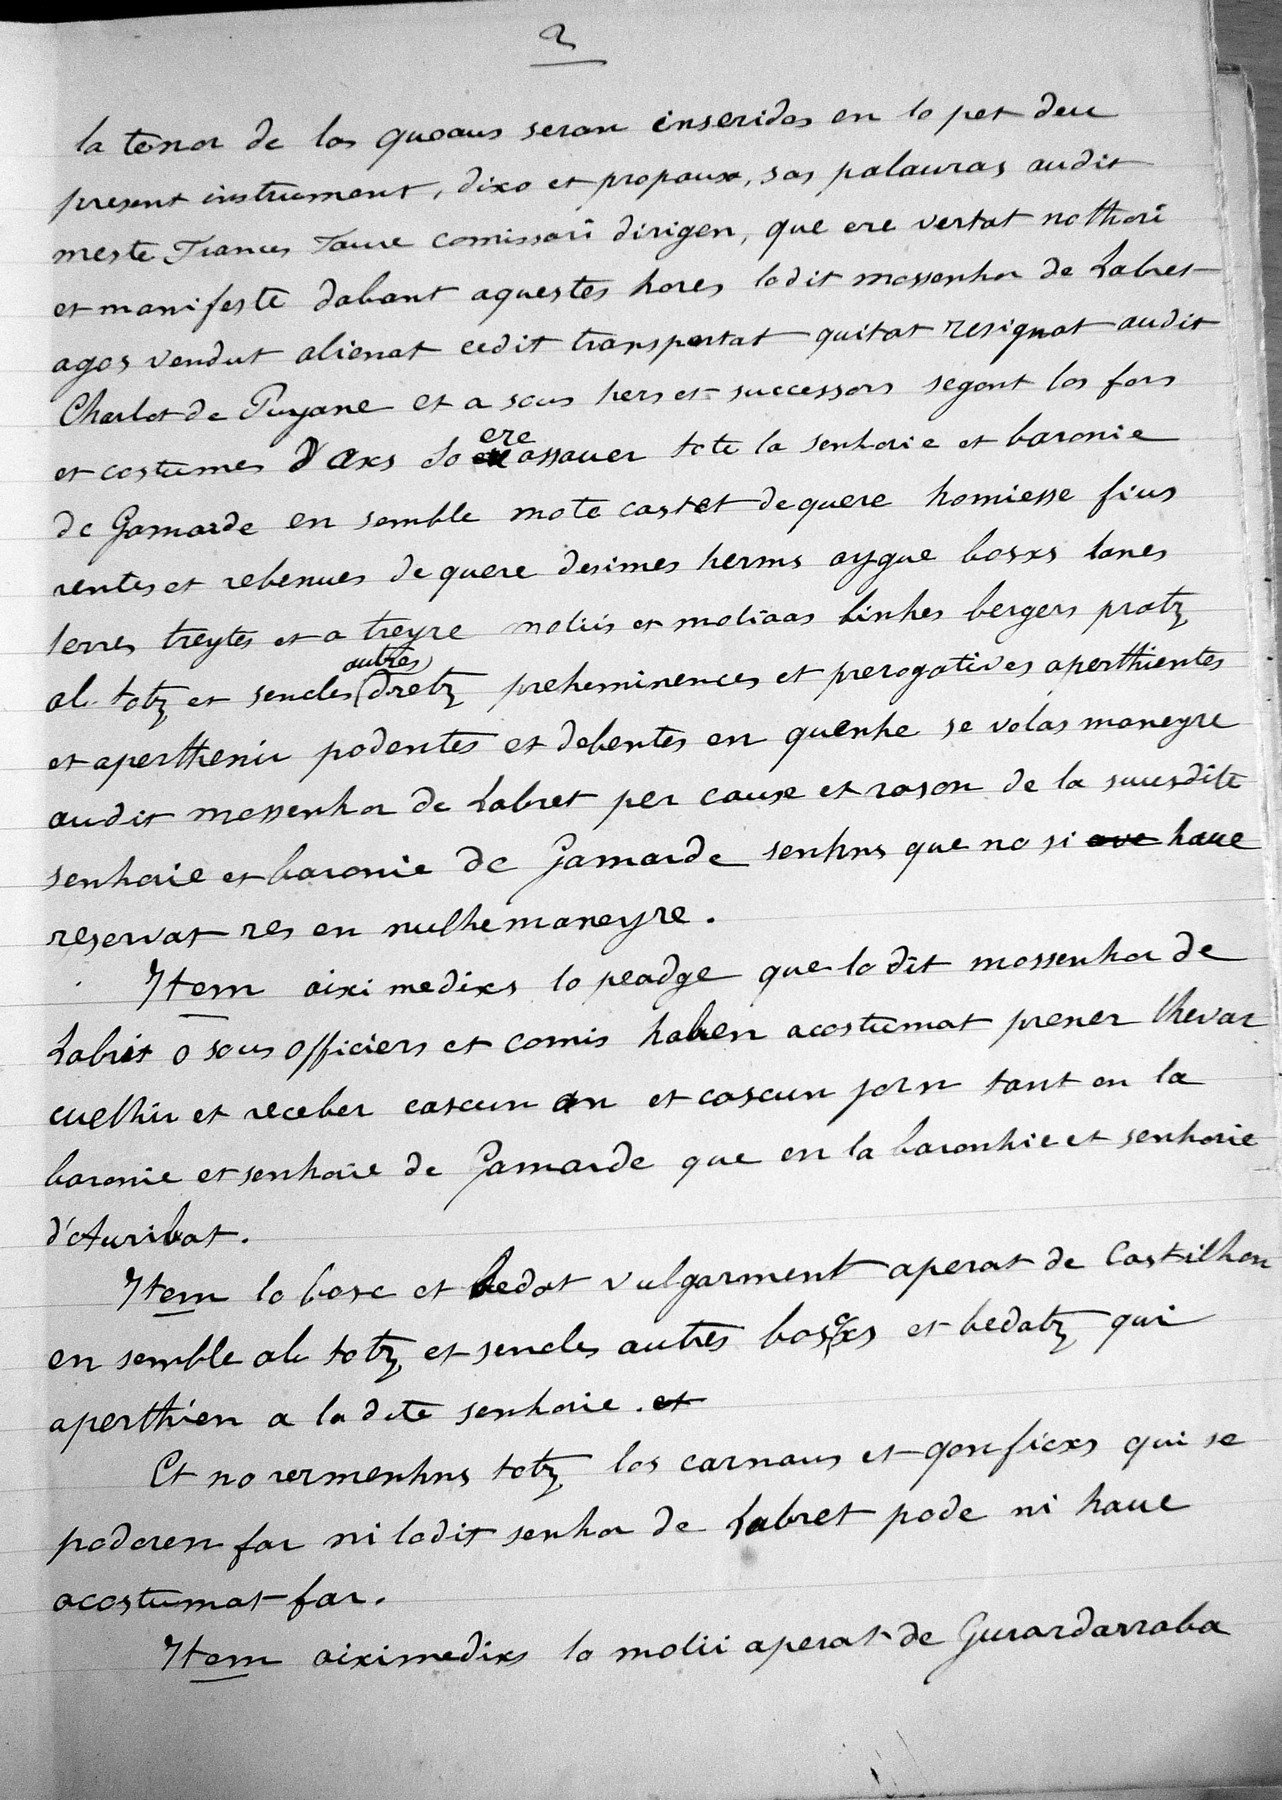 2
la tenor de los quoaus seran inseridas en lo pet deu
present instrument, dixo et propause, sas palauras audit
meste Frances Faure comissari dirigen, que ere vertat nothori
et manifeste dabant aquestes hores lodit mossenhor de Labret
agos vendut alienat cedit transportat quitat resignat audit
Charlot de Puyane et a sous hers et successors segont los fors
et costumes d'Axs so ere assauer tote la senhorie et baronie
de Gamarde en semble mote castet de quere homiesse fius
rentes et rebenues de quere desimes herms aygue bosxs lanes
terres treytes et a treyre moliis et moliaas binhes bergers pratz
ab totz et sencles autres dretz preheminences et prerogatives aperthientes
et aperthenir podentes et debentes en quenhe se volas maneyre
audit mossenhor de Labret per cause et rason de la susdite
senhorie et baronie de Gamarde senhns que no si ave haue
reservat res en nulhe maneyre.
Item aixi medixs lo peadge que lo dit mossenhor de
Labrit o sous officiers et comis haben acostumat prener lhevar
cuelhir et receber cascun an et cascun jorn tant en la
baronie et senhorie de Gamarde que en la baronhie et senhorie
d'Auribat.
Item lo bosc et bedat vulgarment aperat de Castilhon
en semble ab totz et sencles autres boscxs et bedatz qui
aperthien a la dite senhorie. et
Et no remenhns totz los carnaus et gonficxs qui se
poderen far ni lodit senhor de Labret pode ni haue
acostumat far.
Item aiximedixs lo molii aperat de Gurardarraba